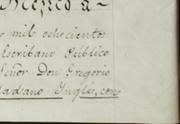 Mexico a
mil ochociento
Escribano Público
Señor Don Gregorio
Ingles, con